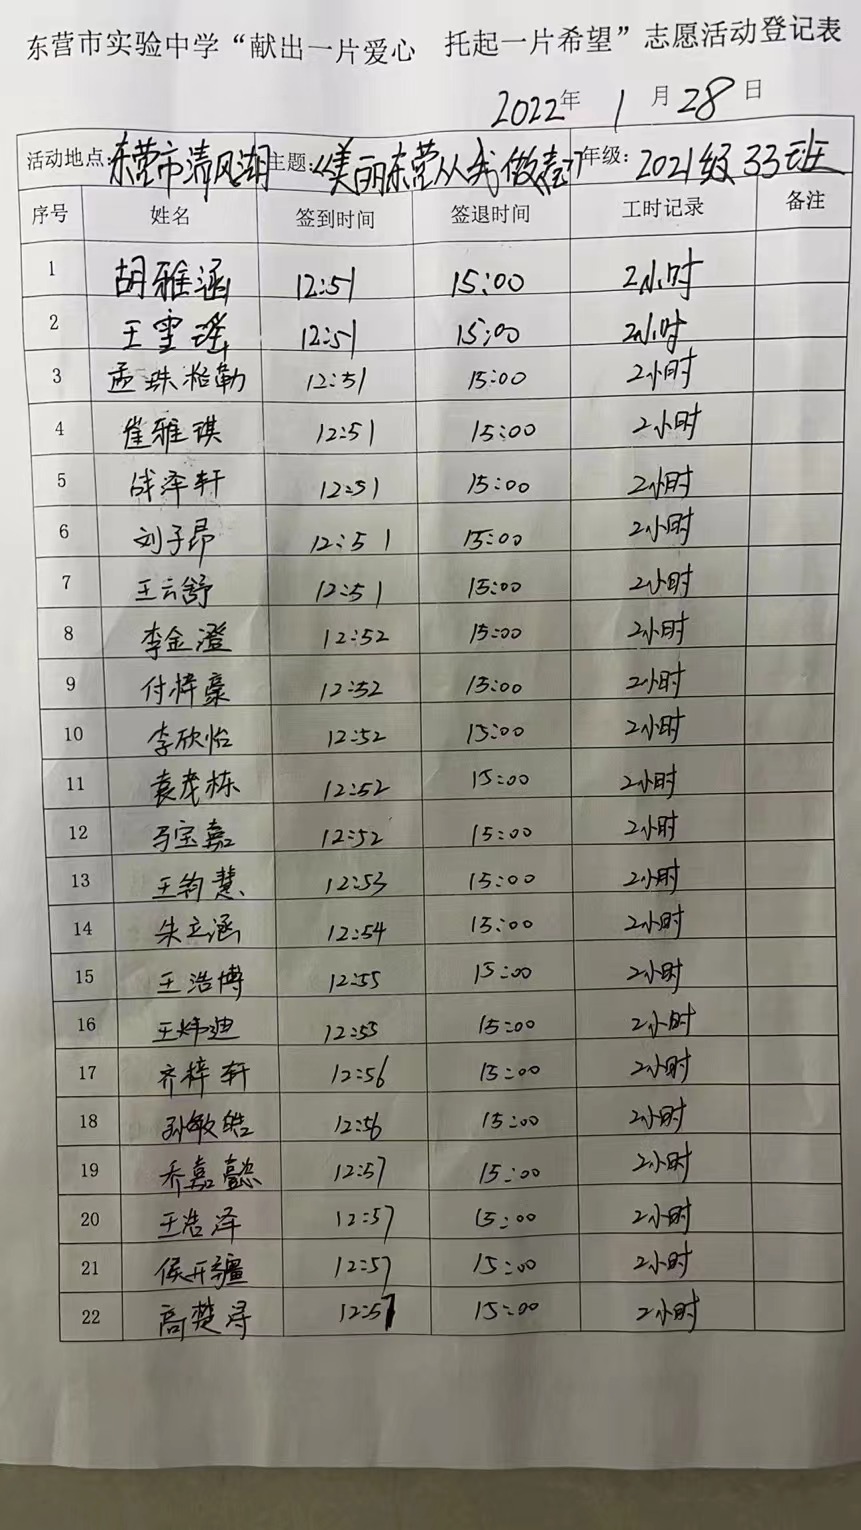 东营市实验中学“献出一片爱心 托起一片希望”志愿活动登记表
2022年 1月28日
活动地点:东营市清风湖 主题:《美丽东营从我做起》 年级:2021级33班
序号 姓名 签到时间 签退时间 工时记录 备注
1 胡雅涵 12:51 15:00 2小时
2 王雪瑶 12:51 15:00 2小时
3 孟珠格勒 12:51 15:00 2小时
4 崔雅琪 12:51 15:00 2小时
5 战泽轩 12:51 15:00 2小时
6 刘子昂 12:51 15:00 2小时
7 王云舒 12:51 15:00 2小时
8 李金澄 12:52 15:00 2小时
9 付梓豪 12:52 15:00 2小时
10 李欣怡 12:52 15:00 2小时
11 袁茂栋 12:52 15:00 2小时
12 马宝嘉 12:52 15:00 2小时
13 王钧慧 12:53 15:00 2小时
14 朱立涵 12:54 15:00 2小时
15 王浩博 12:55 15:00 2小时
16 王炜迪 12:55 15:00 2小时
17 齐梓轩 12:56 15:00 2小时
18 孙敏皓 12:56 15:00 2小时
19 乔嘉懿 12:57 15:00 2小时
20 王浩泽 12:57 15:00 2小时
21 侯开疆 12:57 15:00 2小时
22 高楚浔 12:57 15:00 2小时